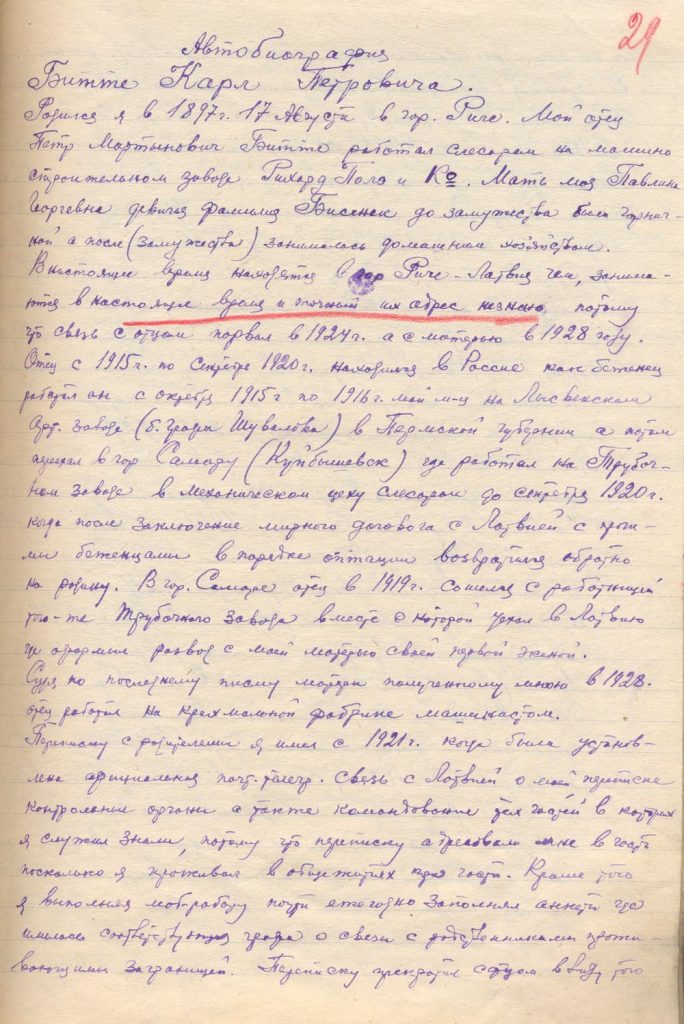 29
Автобиография
Битте Карл Петровича.
Родился я в 1897г. 17 Августа в гор. Риге. Мой отец
Петр Мартынович Битте работал слесарем на машино
строительном заводе Рихард Поле и Кº. Мать моя Павлина
Георгевна девичья фамилия Бисенек до замужества была горнич-
ной а после (замужества) занималась домашним хозяйством.
В настоящее время находятся в гор Риге - Латвия чем, занима-
ются в настоящее время и точный их адрес незнаю, потому
что связь с отцом порвал в 1924г. а с матерью в 1928 году.
Отец с 1915г. по Сентябрь 1920г. находился в России как беженец
работал он с октября 1915г по 1916г. май м-ц на Лысвенском
Арт. заводе (б. графа Шувалова) в Пермской губернии а потом
переехал в гор Самару (Куйбышевск) где работал на Трубоч-
ном заводе в механическом цеху слесарем до сентября 1920г.
когда после заключение мирного договора с Латвией с прочи-
ми беженцами в порядке оптации возвратился обратно
на родину. В гор. Самаре отец в 1919г. сошелся с работницей
того-же Трубочного завода вместе с которой уехал в Латвию
где оформил развод с моей матерью своей первой женой.
Судя по последнему письму матери полученному мною в 1928.
отец работал на крахмальной фабрике машинистом.
Переписку с родителями я имел с 1921г. когда была установ-
лена официальная почт. телегр. связь с Латвией о моей переписке
контрольные органы а также командование тех частей в которых
я служил знали, потому что переписку адресовали мне в часть
поскольку я проживал в общежитиях при части. Кроме того
я выполняя моб-работу почти ежегодно заполнял анкеты где
имелась соответствующая графа о связи с родственниками прожи-
вающими заграницей. Переписку прекратил с отцом в виду того